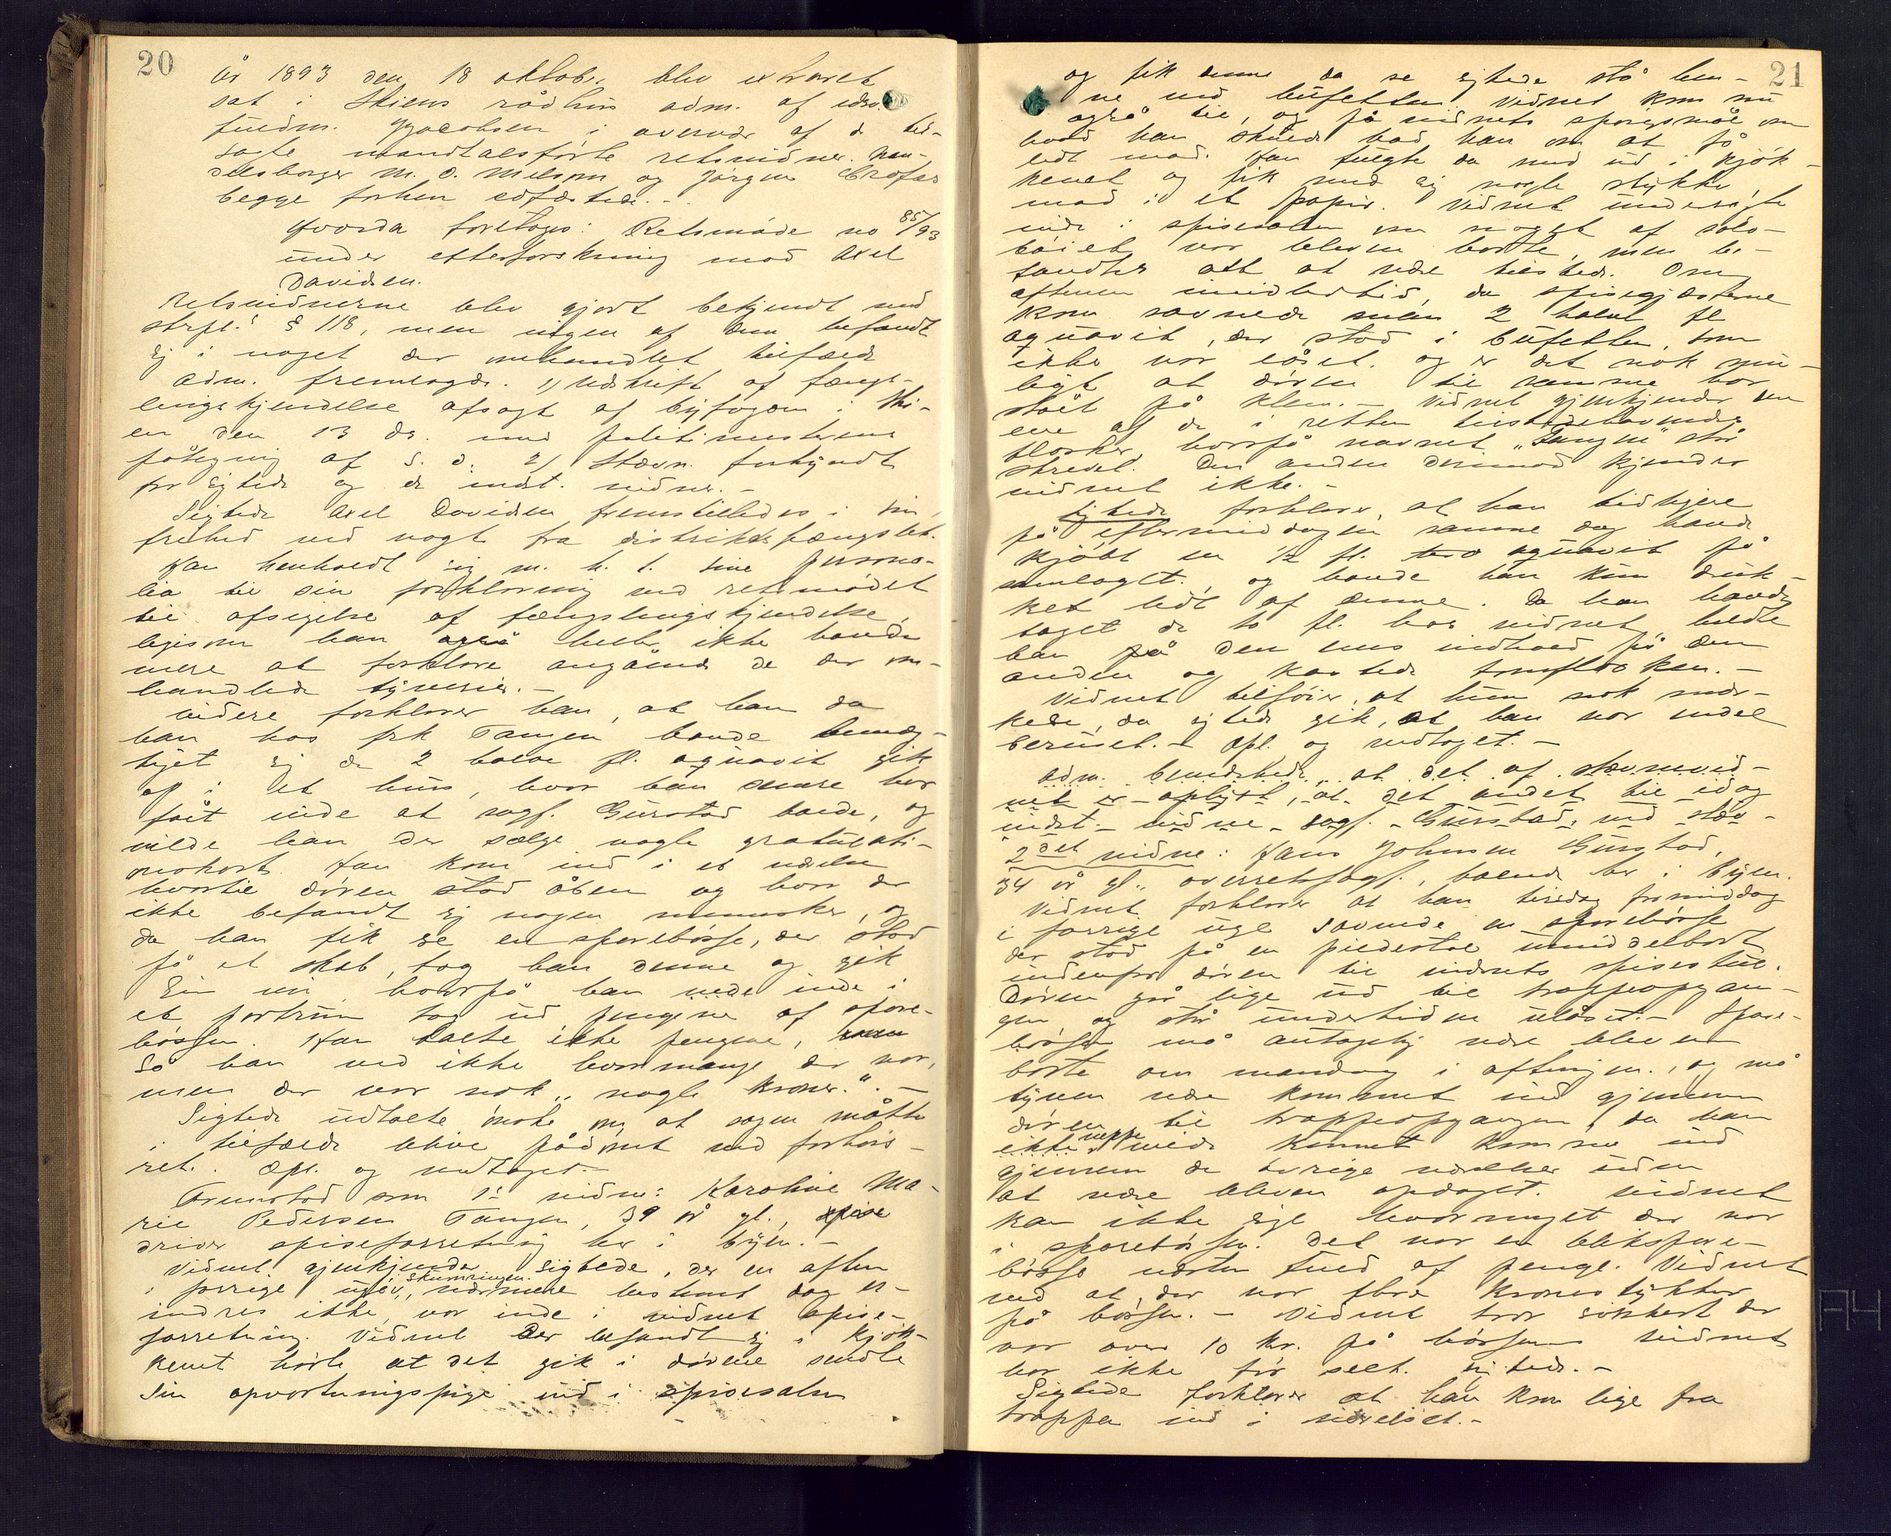 20
År 1893 den 18 oktober blev extraret
sat i Skiens rådhus adm. af edsv.
fuldm. Jacobsen i overvær af de til-
sagte mandtalsførte retsvidner. han-
delsborger M. O. Nilsson og Jørgen
begge forhen edfæstede. -
Hvorda foretoges: Retsmøde no 85/93
under efterforskning mod Axel
Davidsen.
Retsvidnerne blev gjort bekjendt med
strfl.s § 118, men ingen af dem befandt
sig i noget der omhandlet tilfælde
Adm. fremlagde. 1/ Udskrift af fængs-
lingskjendelse afsagt af byfogden i Ski-
en den 13 ds. med politimesterens
påtegning af s. d. 2/ Stævn. forkyndt
for sigtede og de indst. vidner. -
Sigtede Axel Davidsen fremstilledes i sin
frihed med vagt fra distriktsfængslet.
Han henholdt sig m. h. t. sine persona-
lia til sin forklaring ved retsmødet
til afsigelse af fængslingskjendelse,
ligesom han også heller ikke havde
mere at forklare angående de der om-
handlede tyverier. -
Videre forklarer han, at han da
han hos frk Tangen havde bemæg-
tiget sig de 2 halve fl. aquavit gik
op i et hus, hvor han senere har
fået vide at sagf. Gurstad boede, og
vilde han der sælge nogle gratulati-
onskort. Han kom ind i et værelse
hvortil døren stod åben og hvor der
ikke befandt sig nogen mennesker, og
da han fik se en sparebøsse, der stod
på et skab, tog han denne og gik
sin vei, hvorpå han nede inde i
et portrum tog ud pengene af spare-
bøssen. Han talte ikke pengene,
så han ved ikke hvormange der var,
men der var nok "nogle kroner". -
Sigtede udtalte ønske om at sagen måtte
i tilfælde blive pådømt ved forhørs-
ret. Opl. og vedtaget. -
Fremstod som 1ste vidne: Karoline Ma-
rie Pedersen Tangen, 39 år gl., spise
driver spiseforretning her i byen. -
Vidnet gjenkjender sigtede, der en aften
i forrige uge, i skumringen. nærmere bestemt dag er-
indres ikke, var inde i vidnet spise-
forretning. Vidnet der befandt sig i kjøk-
kenet hørte at det gik i dørene sendte
sin opvartningspige ind i spisesalen
21
og fik denne da se sigtede stå hen-
ne ved bufetten. Vidnet kom nu
også til, og på vidnets spørgsmål om
hvad han skulde bad han om at få
lidt mad. Han fulgte da med ud i kjøk-
kenet og fik med sig nogle stykke
mad i et papir. Vidnet undersøgte
inde i spisesalen om noget af sølv-
tøiet var bleven borte, men be-
fandtes alt at være tilstede. Om
aftenen imidlertid, da spisegjæsterne
kom savnede man 2 halve fl
aquavit, der stod i bufetten, som
ikke var låset. og er det nok mu-
ligt at døren til samme har
stået på klem. - Vidnet gjenkjender den
ene af de i retten tilstedeværende
flasker, hvorpå navnet "Tangen" står
skrevet. Den anden derimod kjender
vidnet ikke. -
Sigtede forklarer, at han tidligere
på eftermiddagen samme dag havde
kjøbt en 1/2 fl. aquavit på
samlaget, og havde han kun druk-
ket lidt af denne. Da han havde
taget de to fl. hos vidnet heldte
han på den enes indhold på den
anden og kastede tomflasken. -
Vidnet tilføier, at hun nok mær-
kede, da sigtede gik, at han var endel
beruset. - Opl. og vedtaget. -
Adm. bemærkede, at det af stævnevid-
net er oplyst, at det andet til idag
indst. vidne sagf. Gurstad, ved stæv-
2det vidne: Hans Johnsen Gurstad,
34 år gl., overretssagf., boende her i byen.
Vidnet forklarer at han tirsdag formiddag
i forrige uge savnede en sparebøsse
der stod på en piedestal umiddelbart
indenfor døren til vidnets spisestue.
Døren går lige ud til trappeopgan-
gen og står undertiden ulåset. - Spare-
bøssen må antagelig være bleven
borte om mandag i aftningen, og må
tyven være kommet ind gjennem
døren til trappeopgangen, da han
ikke neppe vilde kunnet komme ind
gjennem de øvrige værelser uden
at være bleven opdaget. Vidnet
kan ikke sige hvormeget der var
i sparebøssen. Det var en blikspare-
bøsse næsten fuld af penge. Vidnet
ved at, der var flere kronestykker
på bøssen. - Vidnet tror sikkert der
var over 10 kr. på bøssen. Vidnet
har ikke før seet sigtede. -
Sigtede forklarer at han kom lige fra
trappen ind i værelset. -